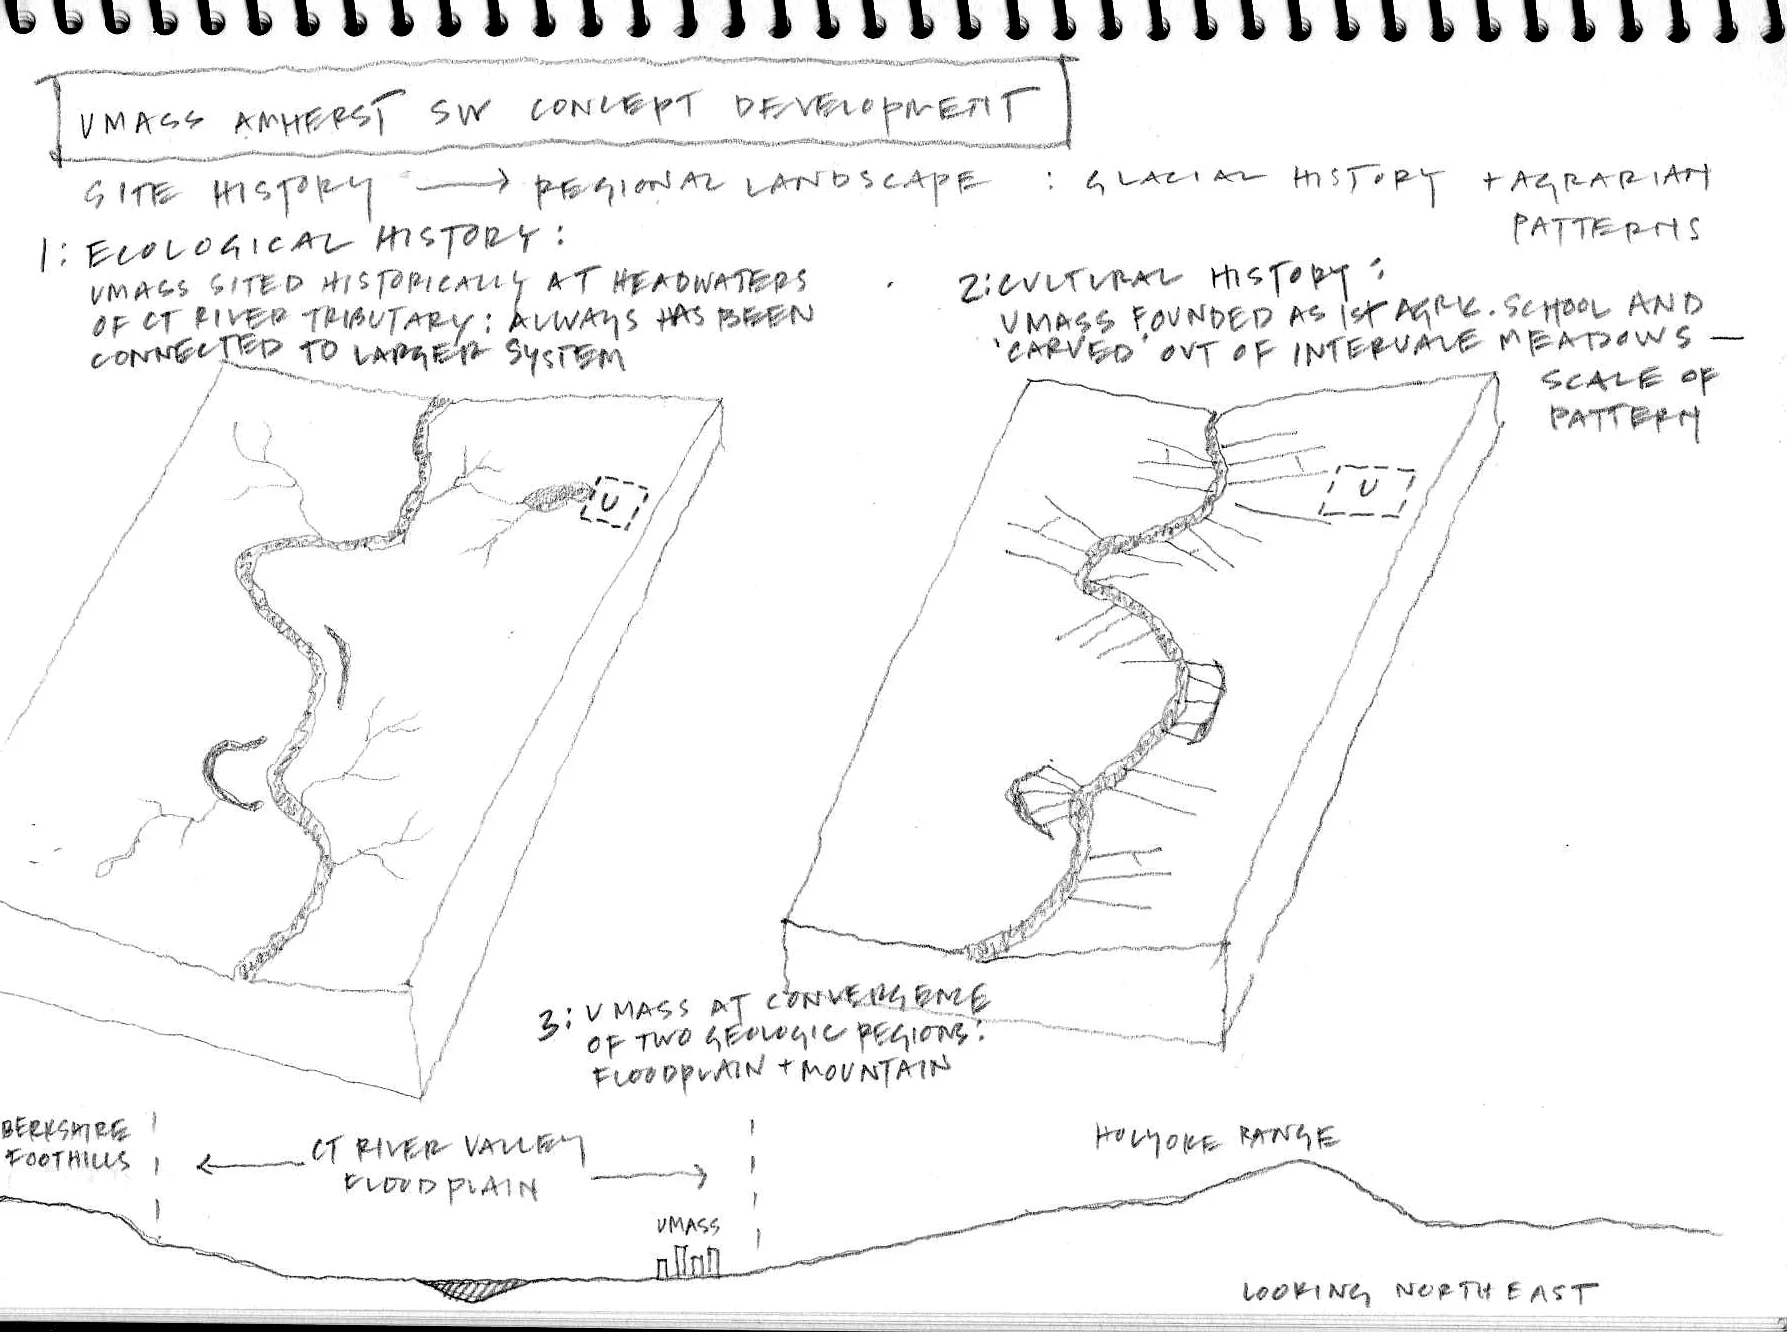 UMASS AMHERST SW CONCEPT DEVELOPMENT
SITE HISTORY → REGIONAL LANDSCAPE : GLACIAL HISTORY + AGRARIAN
PATTERNS
1: ECOLOGICAL HISTORY:
UMASS SITED HISTORICALLY AT HEADWATERS
OF CT RIVER TRIBUTARY: ALWAYS HAS BEEN
CONNECTED TO LARGER SYSTEM
2: CULTURAL HISTORY:
UMASS FOUNDED AS 1st AGRK. SCHOOL AND
'CARVED' OUT OF INTERVALE MEADOWS —
SCALE OF
PATTERN
U
U
3: UMASS AT CONVERGENCE
OF TWO GEOLOGIC REGIONS:
FLOODPLAIN + MOUNTAIN
BERKSHIRE
FOOTHILLS
← CT RIVER VALLEY
FLOODPLAIN →
UMASS
HOLYOKE RANGE
LOOKING NORTHEAST